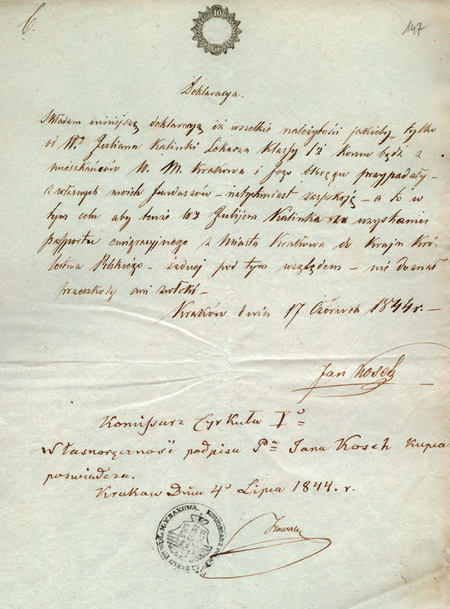 6.
147
10
Deklaracya.
Składam niniejszą deklaracyą iż wszelkie należytości jakieby tylko
od Wo Juliana Kalinki Lekarza Klassy 1ej komu bądź z
mieszkańców W. M. Krakowa i Jego Okręgu przypadały
z własnych moich funduszów – natychmiast zaspokoję – a to w
tym celu aby tenże Julijan Kalinka uzyskaniu
passportu emigracyjnego z Miasta Krakowa do Kraju Kró-
lestwa Polskiego – żadnej pod tym względem – nie doznał
przeszkody ani zwłoki –
Kraków dnia 17 Czerwca 1844 r. –
Jan Kosch
Komissarz Cyrkułu Io
Własnoręczność podpisu Pna Jana Kosch Kupca
poświadcza.
Krakow Dnia 4o Lipca 1844. r.
KRAKOWA